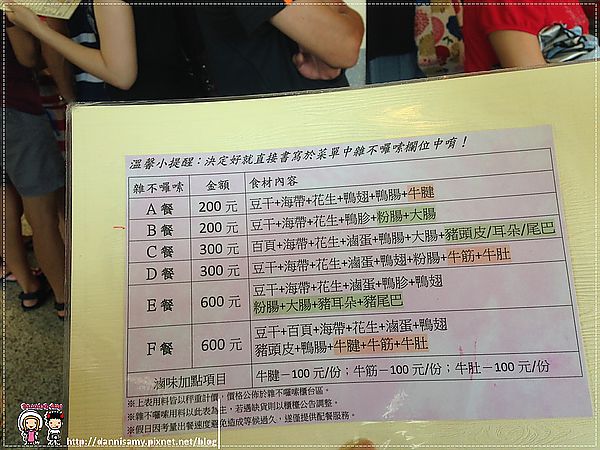 溫馨小提醒：決定好就直接書寫於菜單中雜不囉嗦欄位中唷！
雜不囉嗦 金額 食材內容
A 餐 200 元 豆干+海帶+花生+鴨翅+鴨腸+牛腱
B 餐 200 元 豆干+海帶+花生+鴨胗+粉腸+大腸
C 餐 300 元 百頁+海帶+花生+滷蛋+鴨腸+大腸+豬頭皮/耳朵/尾巴
D 餐 300 元 豆干+海帶+花生+滷蛋+鴨翅+粉腸+牛筋+牛肚
E 餐 600 元 豆干+海帶+花生+滷蛋+鴨胗+鴨翅
粉腸+大腸+豬耳朵+豬尾巴
F 餐 600 元 豆干+百頁+海帶+花生+滷蛋+鴨翅
豬頭皮+鴨腸+牛腱+牛筋+牛肚
滷味加點項目 牛腱－100 元/份；牛筋－100 元/份；牛肚－100 元/份
※上表用料皆以秤重計價，價格公佈於雜不囉嗦櫃台區。
※雜不囉嗦用料以此表為主，若遇缺貨則以櫃檯公告調整。
※假日因考量出餐速度避免造成等候過久，遂僅提供配餐服務。
Dannis&Amy
http://dannisamy.pixnet.net/blog